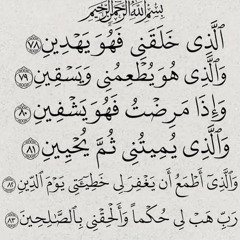 بِسْمِ ٱللَّهِ ٱلرَّحْمَٰنِ ٱلرَّحِيمِ
ٱلَّذِى خَلَقَنِى فَهُوَ يَهْدِينِ ٧٨
وَٱلَّذِى هُوَ يُطْعِمُنِى وَيَسْقِينِ ٧٩
وَإِذَا مَرِضْتُ فَهُوَ يَشْفِينِ ٨٠
وَٱلَّذِى يُمِيتُنِى ثُمَّ يُحْيِينِ ٨١
وَٱلَّذِىٓ أَطْمَعُ أَن يَغْفِرَ لِى خَطِيٓـَٔتِى يَوْمَ ٱلدِّينِ ٨٢
رَبِّ هَبْ لِى حُكْمًا وَأَلْحِقْنِى بِٱلصَّٰلِحِينَ ٨٣